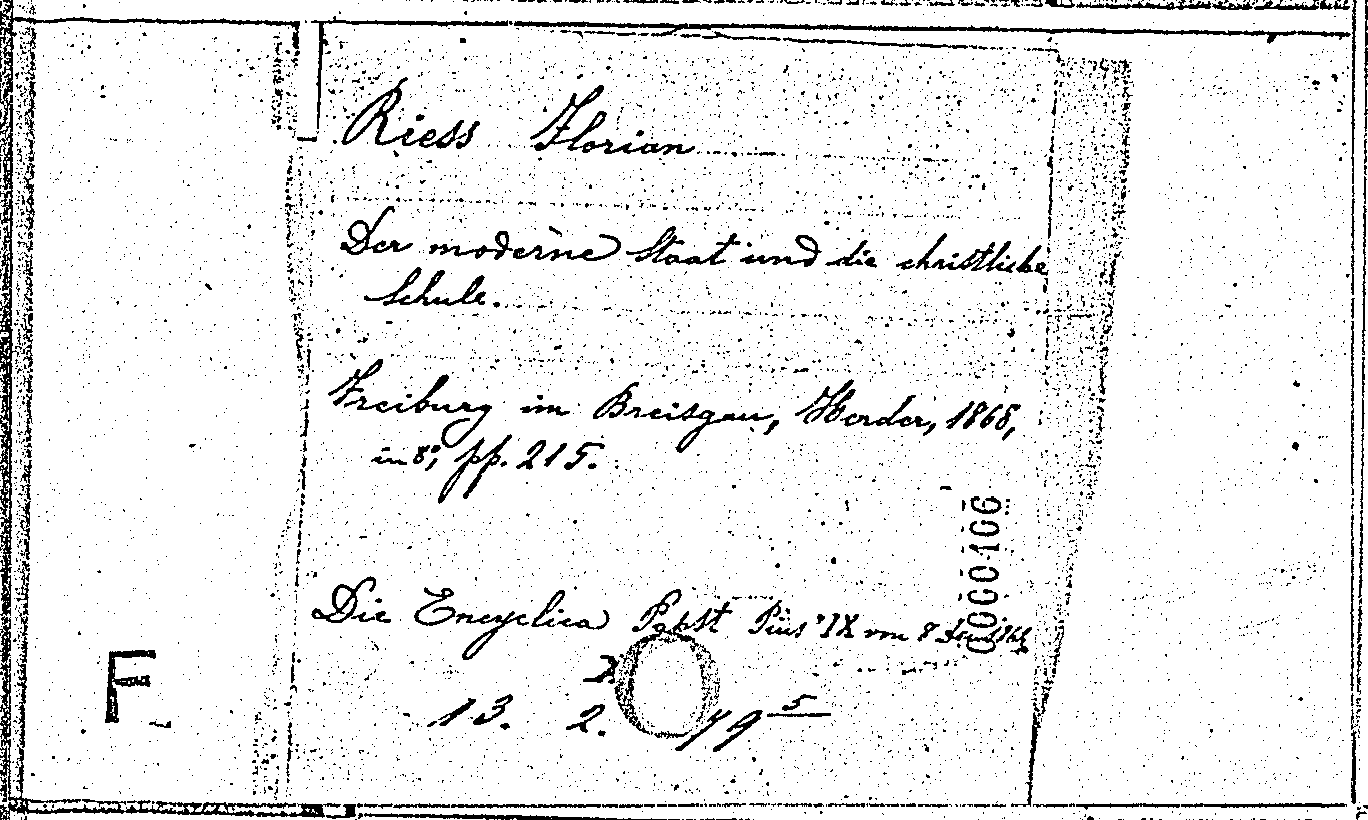 Riess Florian
Der moderne Staat und die christliche
Schule.
Freiburg im Breisgau, Herder, 1868,
in 8°, pp. 215.
Die Encyclica Papst Pius' IX vom 8
13. 2. 79 5
0000106
F